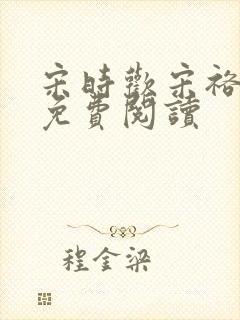 宋時歡宋裕
免費閱讀
程金梁